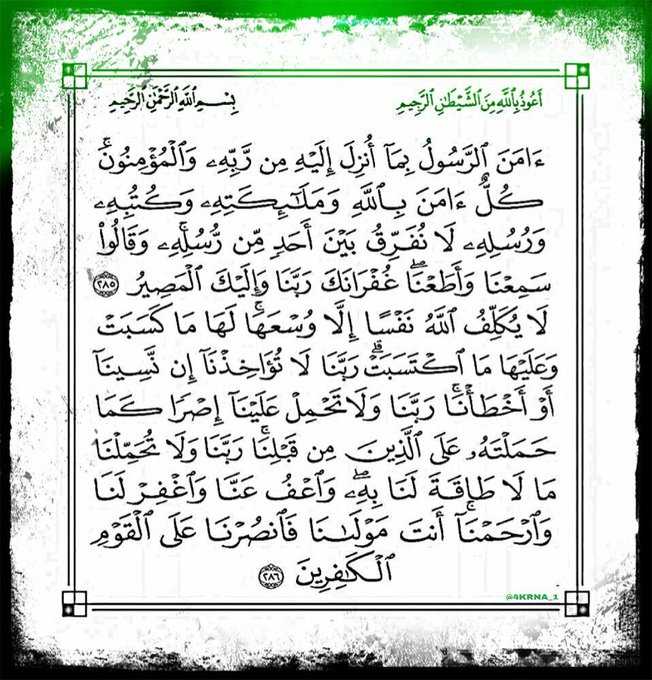 أَعُوذُ بِاللَّهِ مِنَ الشَّيْطَانِ الرَّجِيمِ بِسْمِ اللَّهِ الرَّحْمَٰنِ الرَّحِيمِ
ءَامَنَ ٱلرَّسُولُ بِمَآ أُنزِلَ إِلَيْهِ مِن رَّبِّهِۦ وَٱلْمُؤْمِنُونَۚ
كُلٌّ ءَامَنَ بِٱللَّهِ وَمَلَٰٓئِكَتِهِۦ وَكُتُبِهِۦ
وَرُسُلِهِۦ لَا نُفَرِّقُ بَيْنَ أَحَدٍ مِّن رُّسُلِهِۦۚ وَقَالُوا۟
سَمِعْنَا وَأَطَعْنَاۖ غُفْرَانَكَ رَبَّنَا وَإِلَيْكَ ٱلْمَصِيرُ ٢٨٥
لَا يُكَلِّفُ ٱللَّهُ نَفْسًا إِلَّا وُسْعَهَاۚ لَهَا مَا كَسَبَتْ
وَعَلَيْهَا مَا ٱكْتَسَبَتْۗ رَبَّنَا لَا تُؤَاخِذْنَآ إِن نَّسِينَآ
أَوْ أَخْطَأْنَاۚ رَبَّنَا وَلَا تَحْمِلْ عَلَيْنَآ إِصْرًا كَمَا
حَمَلْتَهُۥ عَلَى ٱلَّذِينَ مِن قَبْلِنَاۚ رَبَّنَا وَلَا تُحَمِّلْنَا
مَا لَا طَاقَةَ لَنَا بِهِۦۖ وَٱعْفُ عَنَّا وَٱغْفِرْ لَنَا
وَٱرْحَمْنَآۚ أَنتَ مَوْلَىٰنَا فَٱنصُرْنَا عَلَى ٱلْقَوْمِ
ٱلْكَٰفِرِينَ ٢٨٦
@4KRNA_1